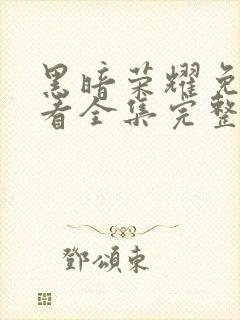 黑暗荣耀免
看全集完整
鄧頌東